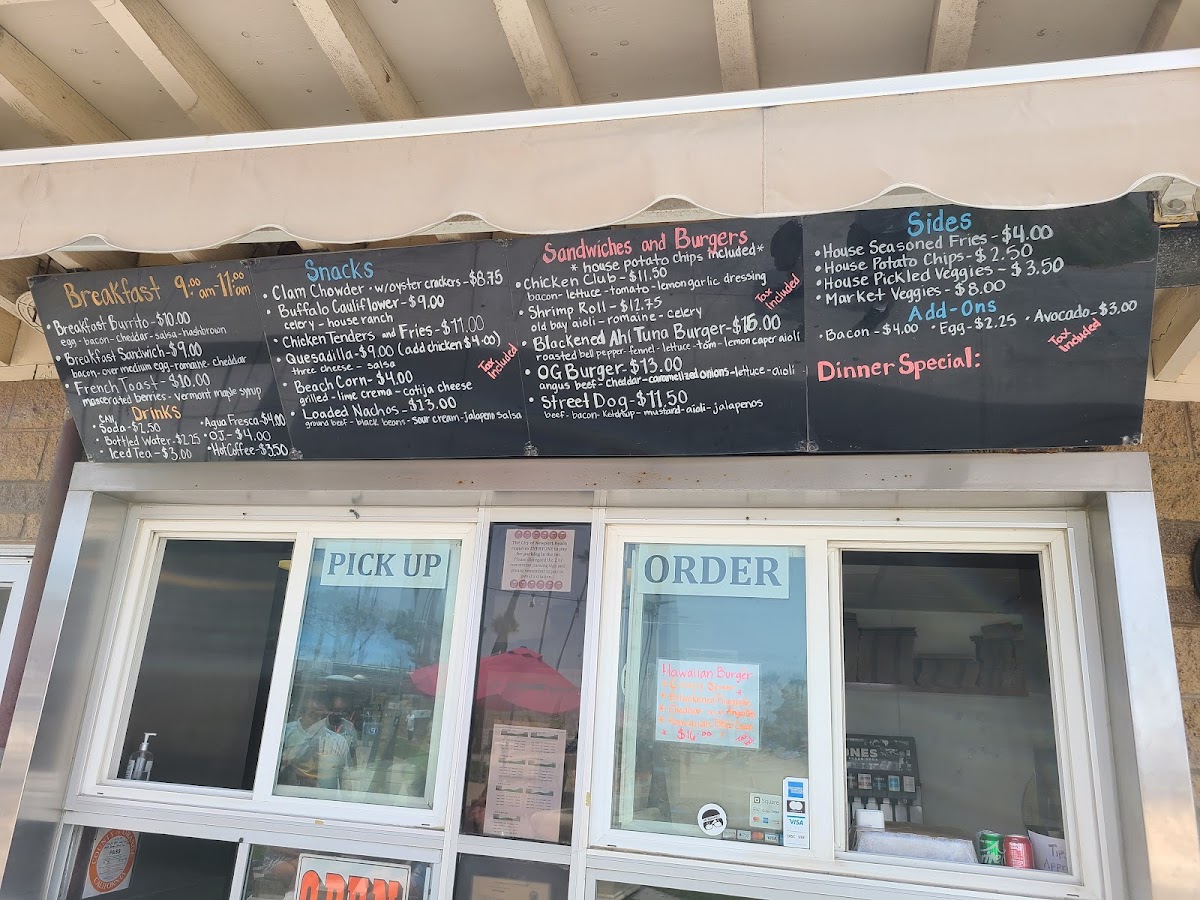 Breakfast 9:00 am - 11:00 am
• Breakfast Burrito - $10.00
egg - bacon - cheddar - salsa - hashbrown
• Breakfast Sandwich - $9.00
bacon - over medium egg - romaine - cheddar
• French Toast - $10.00
macerated berries - vermont maple syrup
Drinks
CAN
• Soda - $2.50
• Bottled Water - $2.25
• Iced Tea - $3.00
• Aqua Fresca - $4.00
• OJ - $4.00
• Hot Coffee - $3.50
Snacks
• Clam Chowder - w/oyster crackers - $8.75
• Buffalo Cauliflower - $9.00
celery - house ranch
• Chicken Tenders and Fries - $11.00
• Quesadilla - $9.00 (add chicken $4.00)
three cheese - salsa
• Beach Corn - $4.00
grilled - lime crema - cotija cheese
• Loaded Nachos - $13.00
ground beef - black beans - sour cream - jalapeno salsa
Tax Included
Sandwiches and Burgers
* house potato chips included *
• Chicken Club - $11.50
bacon - lettuce - tomato - lemon garlic dressing
• Shrimp Roll - $12.75
old bay aioli - romaine - celery
• Blackened Ahi Tuna Burger - $16.00
roasted bell pepper - fennel - lettuce - tom - lemon caper aioli
• OG Burger - $13.00
angus beef - cheddar - caramelized onions - lettuce - aioli
• Street Dog - $11.50
beef - bacon - ketchup - mustard - aioli - jalapenos
Tax Included
Sides
• House Seasoned Fries - $4.00
• House Potato Chips - $2.50
• House Pickled Veggies - $3.50
• Market Veggies - $8.00
Add-Ons
• Bacon - $4.00 • Egg - $2.25 • Avocado - $3.00
Tax Included
Dinner Special:
PICK UP
ORDER
Hawaiian Burger
$16.00
Square
VISA
OPEN